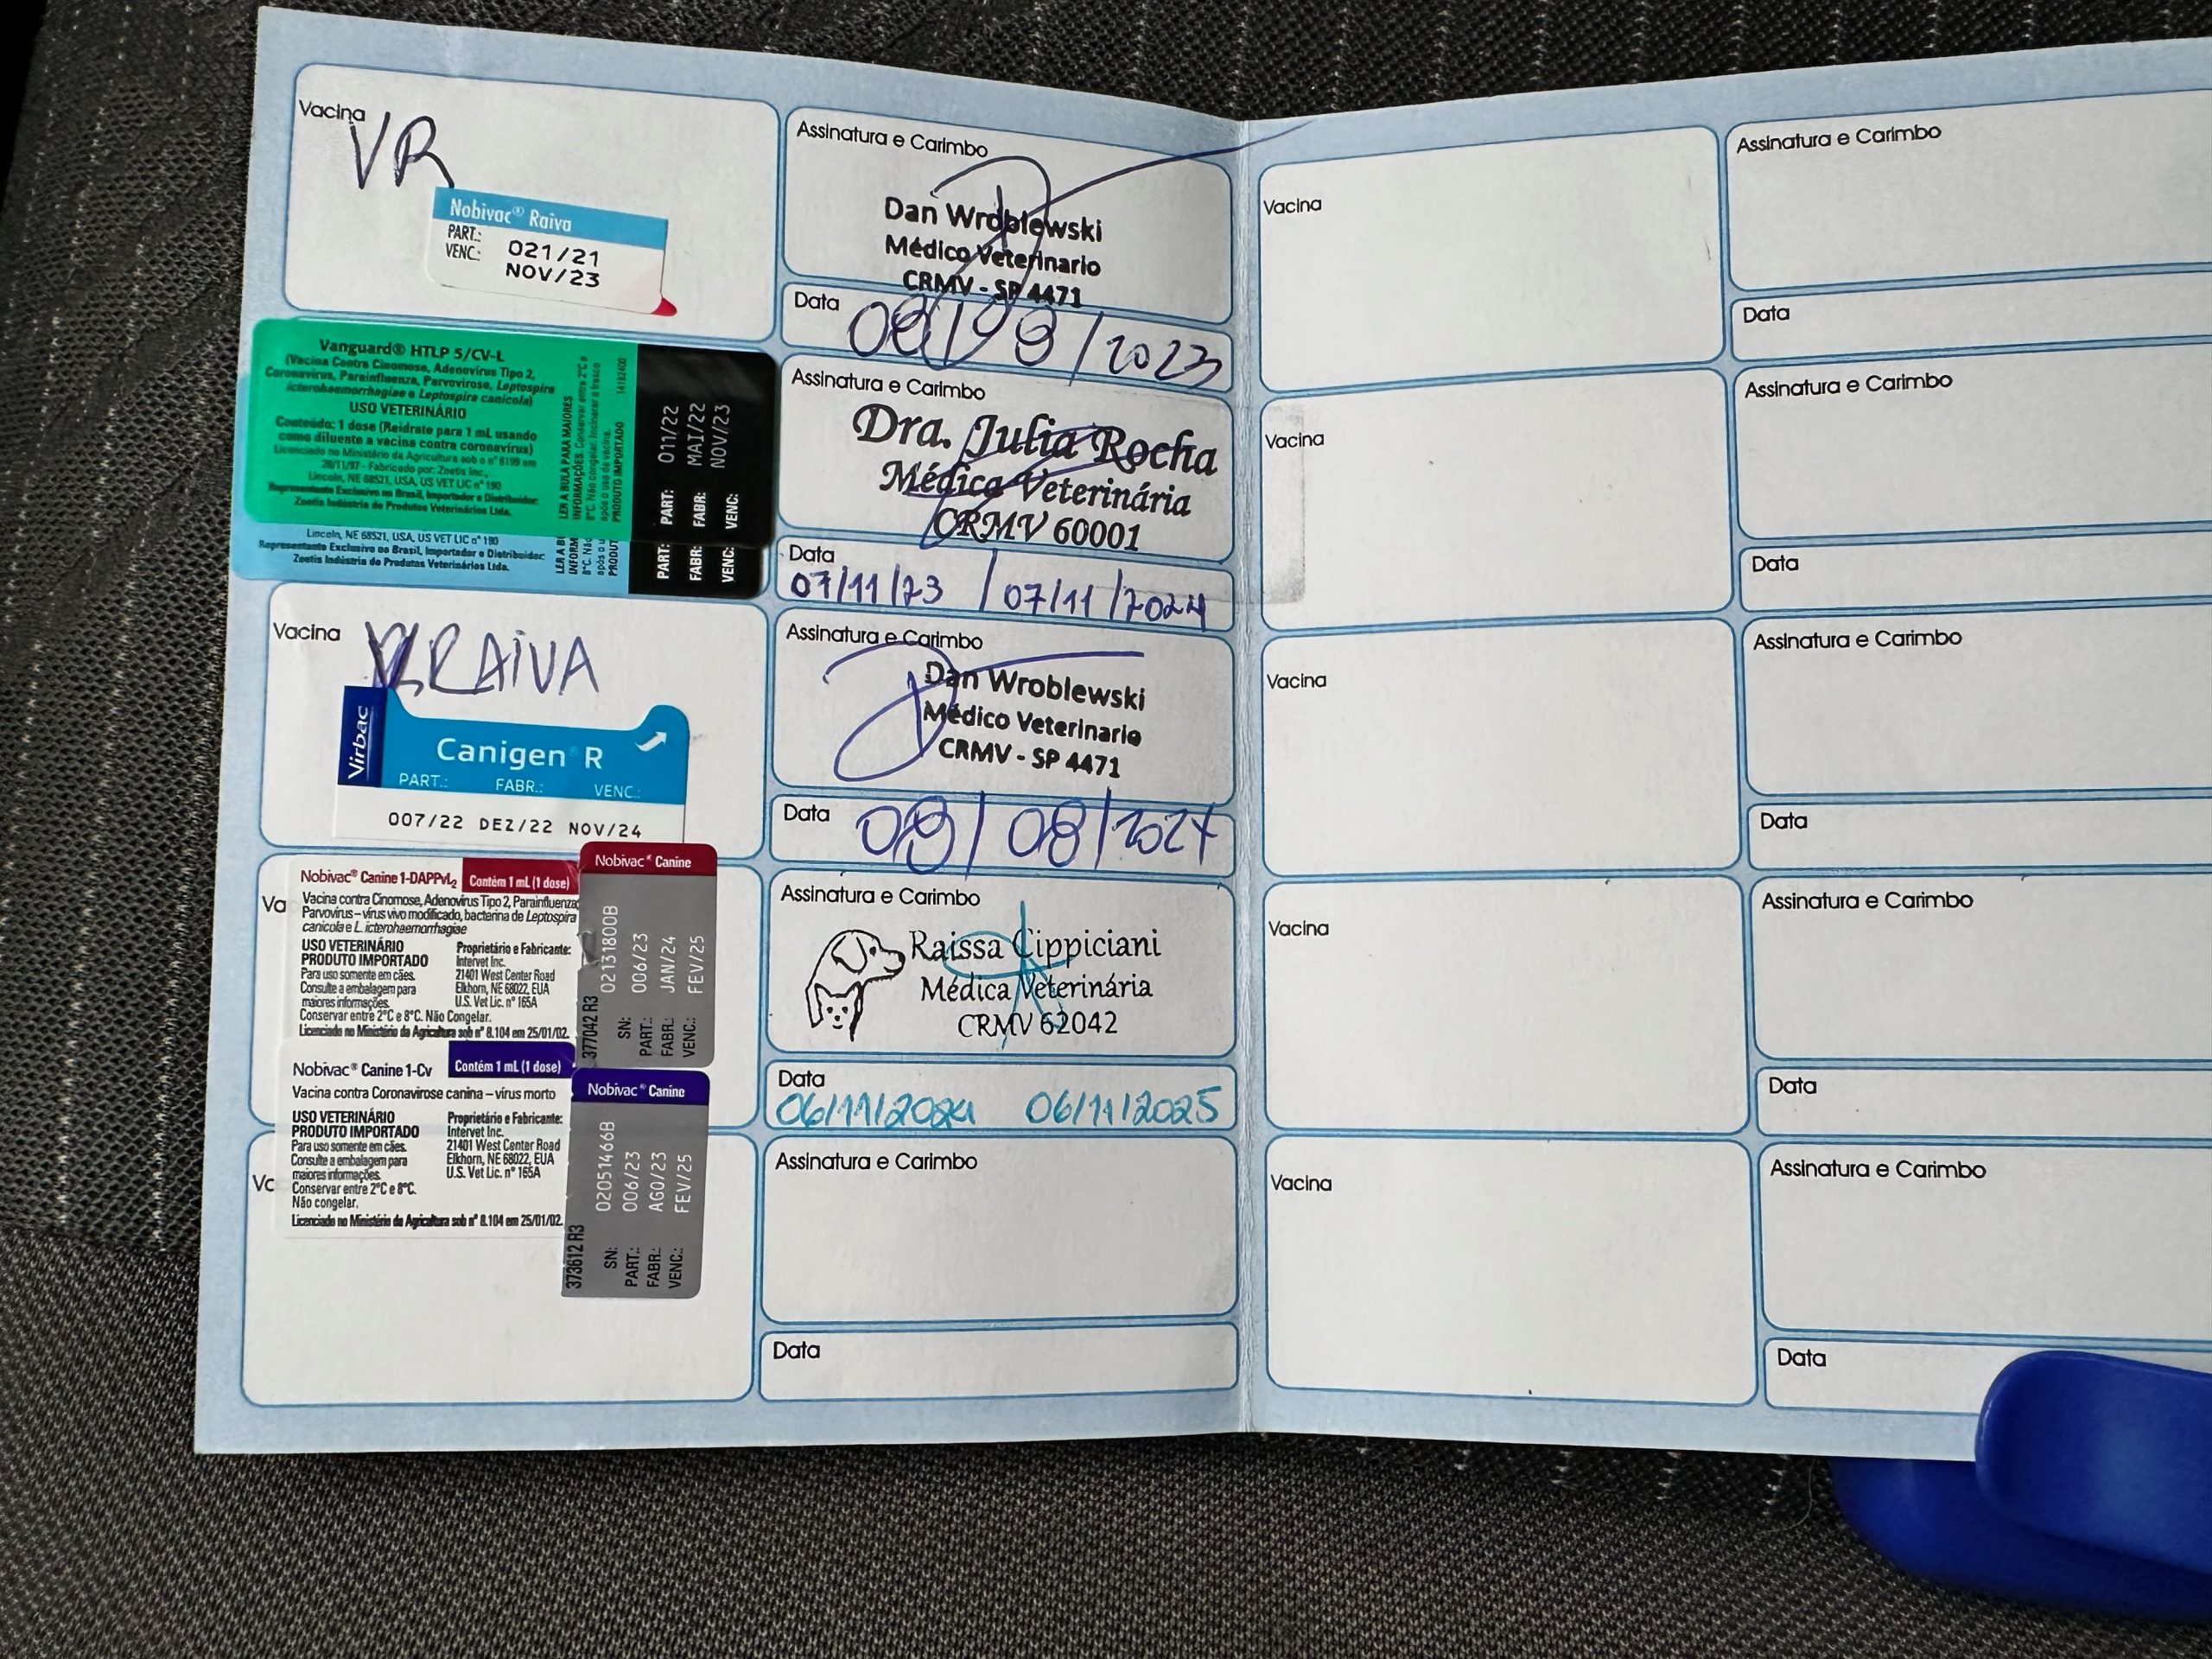 Vacina
VR
Nobivac® Raiva
PART.: 021/21
VENC.: NOV/23
Assinatura e Carimbo
Dan Wroblewski
Médico Veterinario
CRMV - SP 4471
Data
/2023
Vanguard® HTLP 5/CV-L
(Vacina Contra Cinomose, Adenovírus Tipo 2,
Coronavírus, Parainfluenza, Parvovirose, Leptospira
icterohaemorrhagiae e Leptospira canicola)
USO VETERINÁRIO
Conteúdo: 1 dose (Reidrate para 1 mL usando
como diluente a vacina contra coronavírus)
Licenciado no Ministério da Agricultura sob o nº 6199 em
Fabricado por: Zoetis Inc.,
Lincoln, NE 68521, USA, US VET LIC nº 190
Representante Exclusivo no Brasil, Importador e Distribuidor:
Zoetis Indústria de Produtos Veterinários Ltda.
LER A BULA PARA MAIORES
INFORMAÇÕES. Conservar entre 2°C e
8°C. Não congelar. Incinerar o frasco
após o uso da vacina.
PRODUTO IMPORTADO
PART.: 011/22
FABR.: MAI/22
VENC.: NOV/23
Lincoln, NE 68521, USA, US VET LIC nº 190
Representante Exclusivo no Brasil, Importador e Distribuidor:
Zoetis Indústria de Produtos Veterinários Ltda.
PART.:
FABR.:
VENC.:
Assinatura e Carimbo
Dra. Julia Rocha
Médica Veterinária
CRMV 60001
Data
07/11/23 / 07/11/2024
Vacina
RAIVA
Virbac
Canigen R
PART.: FABR.: VENC.:
007/22 DEZ/22 NOV/24
Assinatura e Carimbo
Dan Wroblewski
Médico Veterinario
CRMV - SP 4471
Data
09/08/2024
Va
Nobivac® Canine 1-DAPPvL2 Contém 1 mL (1 dose)
Vacina contra Cinomose, Adenovírus Tipo 2, Parainfluenza,
Parvovírus – vírus vivo modificado, bacterina de Leptospira
canicola e L. icterohaemorrhagiae
USO VETERINÁRIO
PRODUTO IMPORTADO
Para uso somente em cães.
Consulte a embalagem para
maiores informações.
Conservar entre 2°C e 8°C. Não Congelar.
Licenciado no Ministério da Agricultura sob nº 8.104 em 25/01/02.
Proprietário e Fabricante:
Intervet Inc.
21401 West Center Road
Elkhorn, NE 68022, EUA
U.S. Vet Lic. nº 165A
Nobivac® Canine
377042 R3
SN: 02131800B
PART.: 006/23
FABR.: JAN/24
VENC.: FEV/25
Assinatura e Carimbo
Raissa Cippiciani
Médica Veterinária
CRMV 62042
Data
06/11/2024 06/11/2025
Vc
Nobivac® Canine 1-Cv Contém 1 mL (1 dose)
Vacina contra Coronavirose canina – vírus morto
USO VETERINÁRIO
PRODUTO IMPORTADO
Para uso somente em cães.
Consulte a embalagem para
maiores informações.
Conservar entre 2°C e 8°C.
Não congelar.
Licenciado no Ministério da Agricultura sob nº 8.104 em 25/01/02.
Proprietário e Fabricante:
Intervet Inc.
21401 West Center Road
Elkhorn, NE 68022, EUA
U.S. Vet Lic. nº 165A
Nobivac® Canine
373612 R3
SN: 02051466B
PART.: 006/23
FABR.: AGO/23
VENC.: FEV/25
Assinatura e Carimbo
Data
Vacina
Assinatura e Carimbo
Data
Vacina
Assinatura e Carimbo
Data
Vacina
Assinatura e Carimbo
Data
Vacina
Assinatura e Carimbo
Data
Vacina
Assinatura e Carimbo
Data